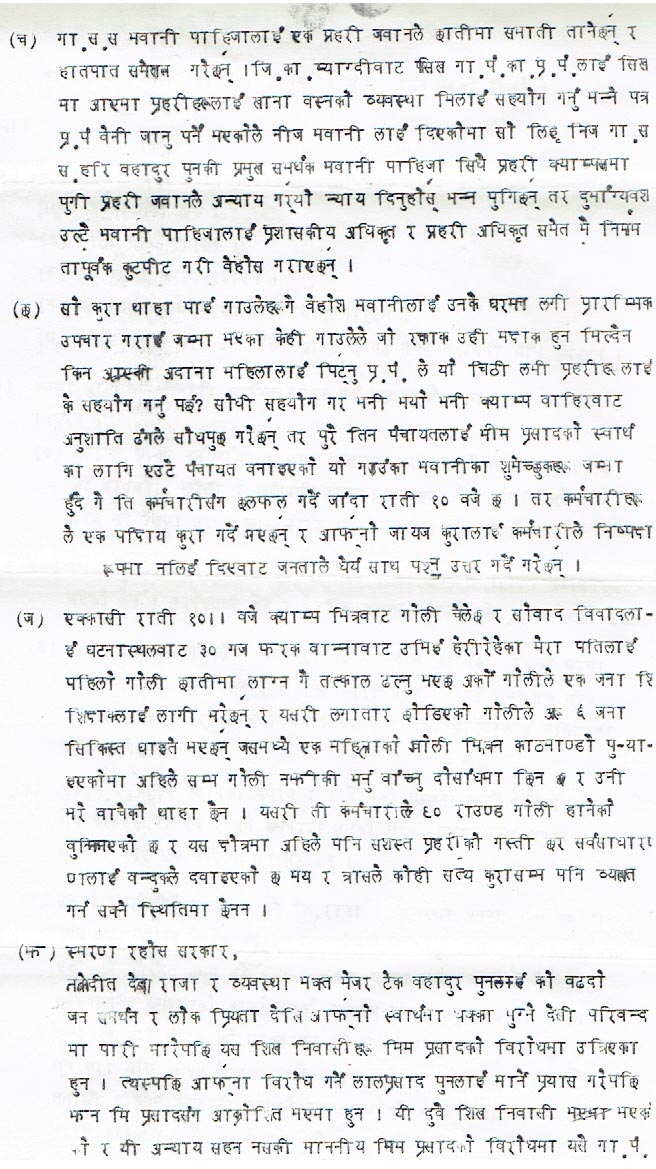 (च) गा.स.स भवानी पाहिजालाई एक प्रहरी जवानले छातीमा समाती तानेछन् र
हातपात समेत गरेछन् । जि.का.म्याग्दीवाट सिस गा.पं.का प्र.पं.लाई सिस
मा आएमा प्रहरीहरूलाई खाना वस्नको व्यवस्था मिलाई सहयोग गर्नु भन्ने पत्र
प्र.पं वेनी जानु पर्ने भएकोले नीज भवानी लाई दिएकोमा सो लिइ निज गा.स
स.हरि वहादुर पुनकी प्रमुख समर्थक भवानी पाहिजा सिधै प्रहरी क्याम्पसमा
पुगी प्रहरी जवानले अन्याय गर्‌यो न्याय दिनुहोस् भन्न पुगिछन् तर दुर्भाग्यवश
उल्टै भवानी पाहिजालाई प्रशासकीय अधिकृत र प्रहरी अधिकृत समेत मै निर्मम
तापूर्वक कुटपीट गरी वेहोस गराएछन् ।
(छ) सो कुरा थाहा पाई गाउलेहरू गै वेहोश भवानीलाई उनकै घरमा लगी प्रारम्भिक
उपचार गराई जम्मा भएका केही गाउलेले जो रक्षक उही भक्षक हुन मिल्दैन
किन अर्काकी अदाना महिलालाई पिट्नु प्र.पं. ले यो चिठी लमी प्रहरीहरू लाई
के सहयोग गर्नु पर्छ? सोधी सहयोग गर भनी भयो भनी क्याम्प वाहिरवाट
अनुशाति ढंगले सोधपुछ गरेछन् तर पुरै तिन पंचायतलाई भीम प्रसादको स्वार्थ
का लागि एउटै पंचायत वनाइएको यो गाउंका भवानीका शुभेच्छुकहरू जम्मा
हुंदै गै ति कर्मचारीसंग छलफल गर्दै जांदा राती १० वजे छ । तर कर्मचारीहरू
ले एक पक्षिय कुरा गर्दै भएछन् र आफ्नो जायज कुरालाई कर्मचारीले निष्पक्ष
रूपमा नलिई दिएवाट जनताले धैर्य साथ प्रश्न उत्तर गर्दै गरेछन् ।
(ज) एक्कासी राती १०।। वजे क्याम्प भित्रवाट गोली चलेछ र सोवाद विवादला-
ई घटनास्थलवाट ३० गज फरक वान्नावाट उभिई हेरीरहेका मेरा पतिलाई
पहिलो गोली छातीमा लाग्न गै तत्काल ढल्नु भएछ अर्को गोलीले एक जना शि
शिक्षकलाई लागी मरेछन् र यसरी लगातार छोडिएको गोलीले अरू ६ जना
सिकिस्त घाइते भएछन् जसमध्ये एक महिलाको गोली झिक्न काठमाण्डौ पु-या-
इएकोमा अहिले सम्म गोली नझीकी मर्नु वाच्नु दोसाधमा छिन छ र उनी
मरे वाचेको थाहा छैन । यसरी ती कर्मचारीले ६० राउण्ड गोली हानेको
वुझिएको छ र यस क्षेत्रमा अहिले पनि सशस्त प्रहरीको गस्ती छ र सर्वसाधार
णलाई वन्दुकले दवाइएको छ भय र त्रासले कोही सत्य कुरासम्म पनि व्यक्त
गर्न सक्ने स्थितिमा छैनन ।
(झ) स्मरण रहोस सरकार,
राजा र व्यवस्था भक्त मेजर टेक वहादुर पुनलाई को वढदो
जन समर्थन र लोक प्रियता देखि आफ्नो स्वार्थमा धक्का पुग्ने देखी परिवन्द
मा पारी मारेपछि यस शिख निवासीहरू भिम प्रसादको विरोधमा उत्रिएका
हुन । त्यस्पछि आफ्ना विरोध गर्ने लालप्रसाद पुनलाई मार्ने प्रयास गरेपछि
झन भि प्रसादसंग आक्रोशित भएमा हुन । यी दुवै शिख निवासी भएका
को र यी अन्याय सहन नसकी माननीय भिम प्रसादको विरोधमा यसै गा.पं.